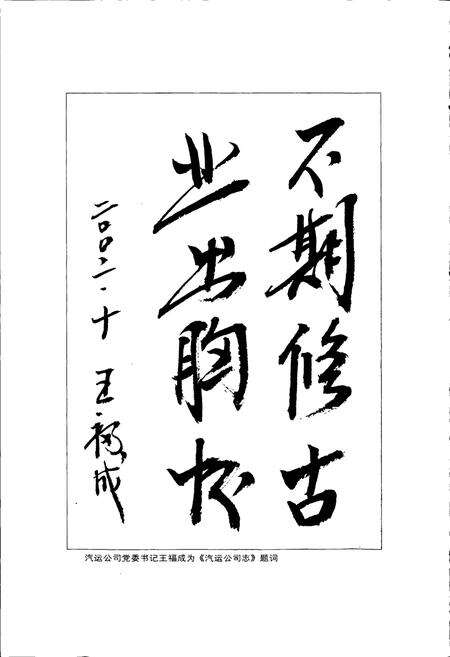 不期修古
业出胸怀
二〇〇二·十 王福成
汽运公司党委书记王福成为《汽运公司志》题词